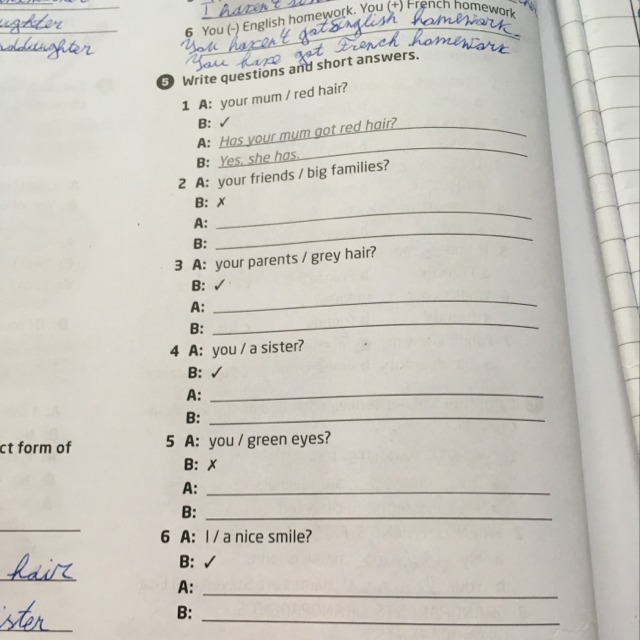 I haven't
6 You (-) English homework. You (+) French homework
You haven't got English homework.
You have got French homework
5 Write questions and short answers.
1 A: your mum / red hair?
B: ✓
A: Has your mum got red hair?
B: Yes, she has.
2 A: your friends / big families?
B: ✗
A:
B:
3 A: your parents / grey hair?
B: ✓
A:
B:
4 A: you / a sister?
B: ✓
A:
B:
5 A: you / green eyes?
B: ✗
A:
B:
6 A: I / a nice smile?
B: ✓
A:
B:
ughter
ddaughter
ct form of
hair
ister